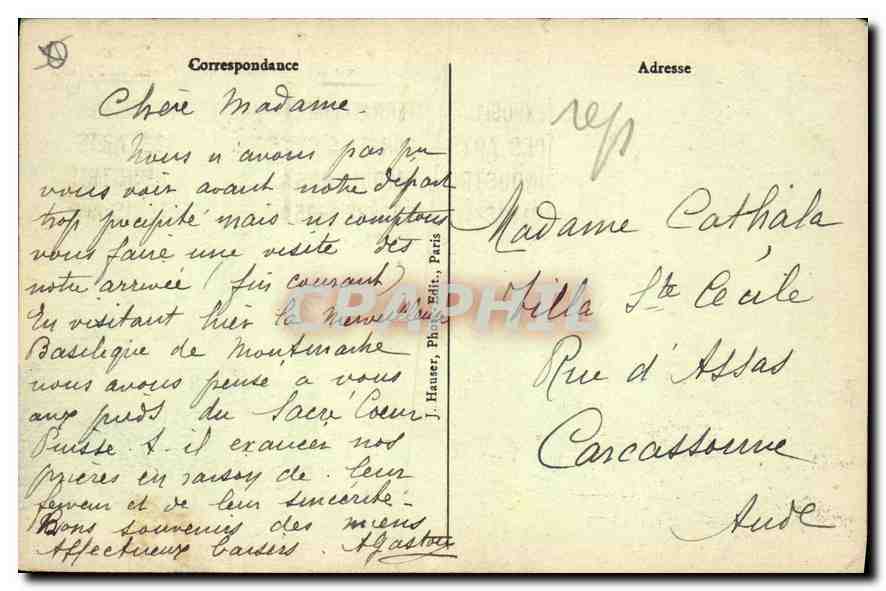 Correspondance
Chère Madame.
Nous n'avons pas pu
vous voir avant notre départ
trop précipité mais ns comptons
vous faire une visite dès
notre arrivée (fin courant)
En visitant hier la merveilleuse
Basilique de Montmartre
nous avons pensé à vous
aux pieds du Sacré Coeur
Puisse-t-il exaucer nos
prières en raison de leur
ferveur et de leur sincérité-
Bons souvenirs des miens
Affectueux baisers. AGaston
J. Hauser, Photo-Edit., Paris
Adresse
rep
Madame Cathala
Villa Ste Cécile
Rue d'Assas
Carcassonne
Aude
CPAPHIL